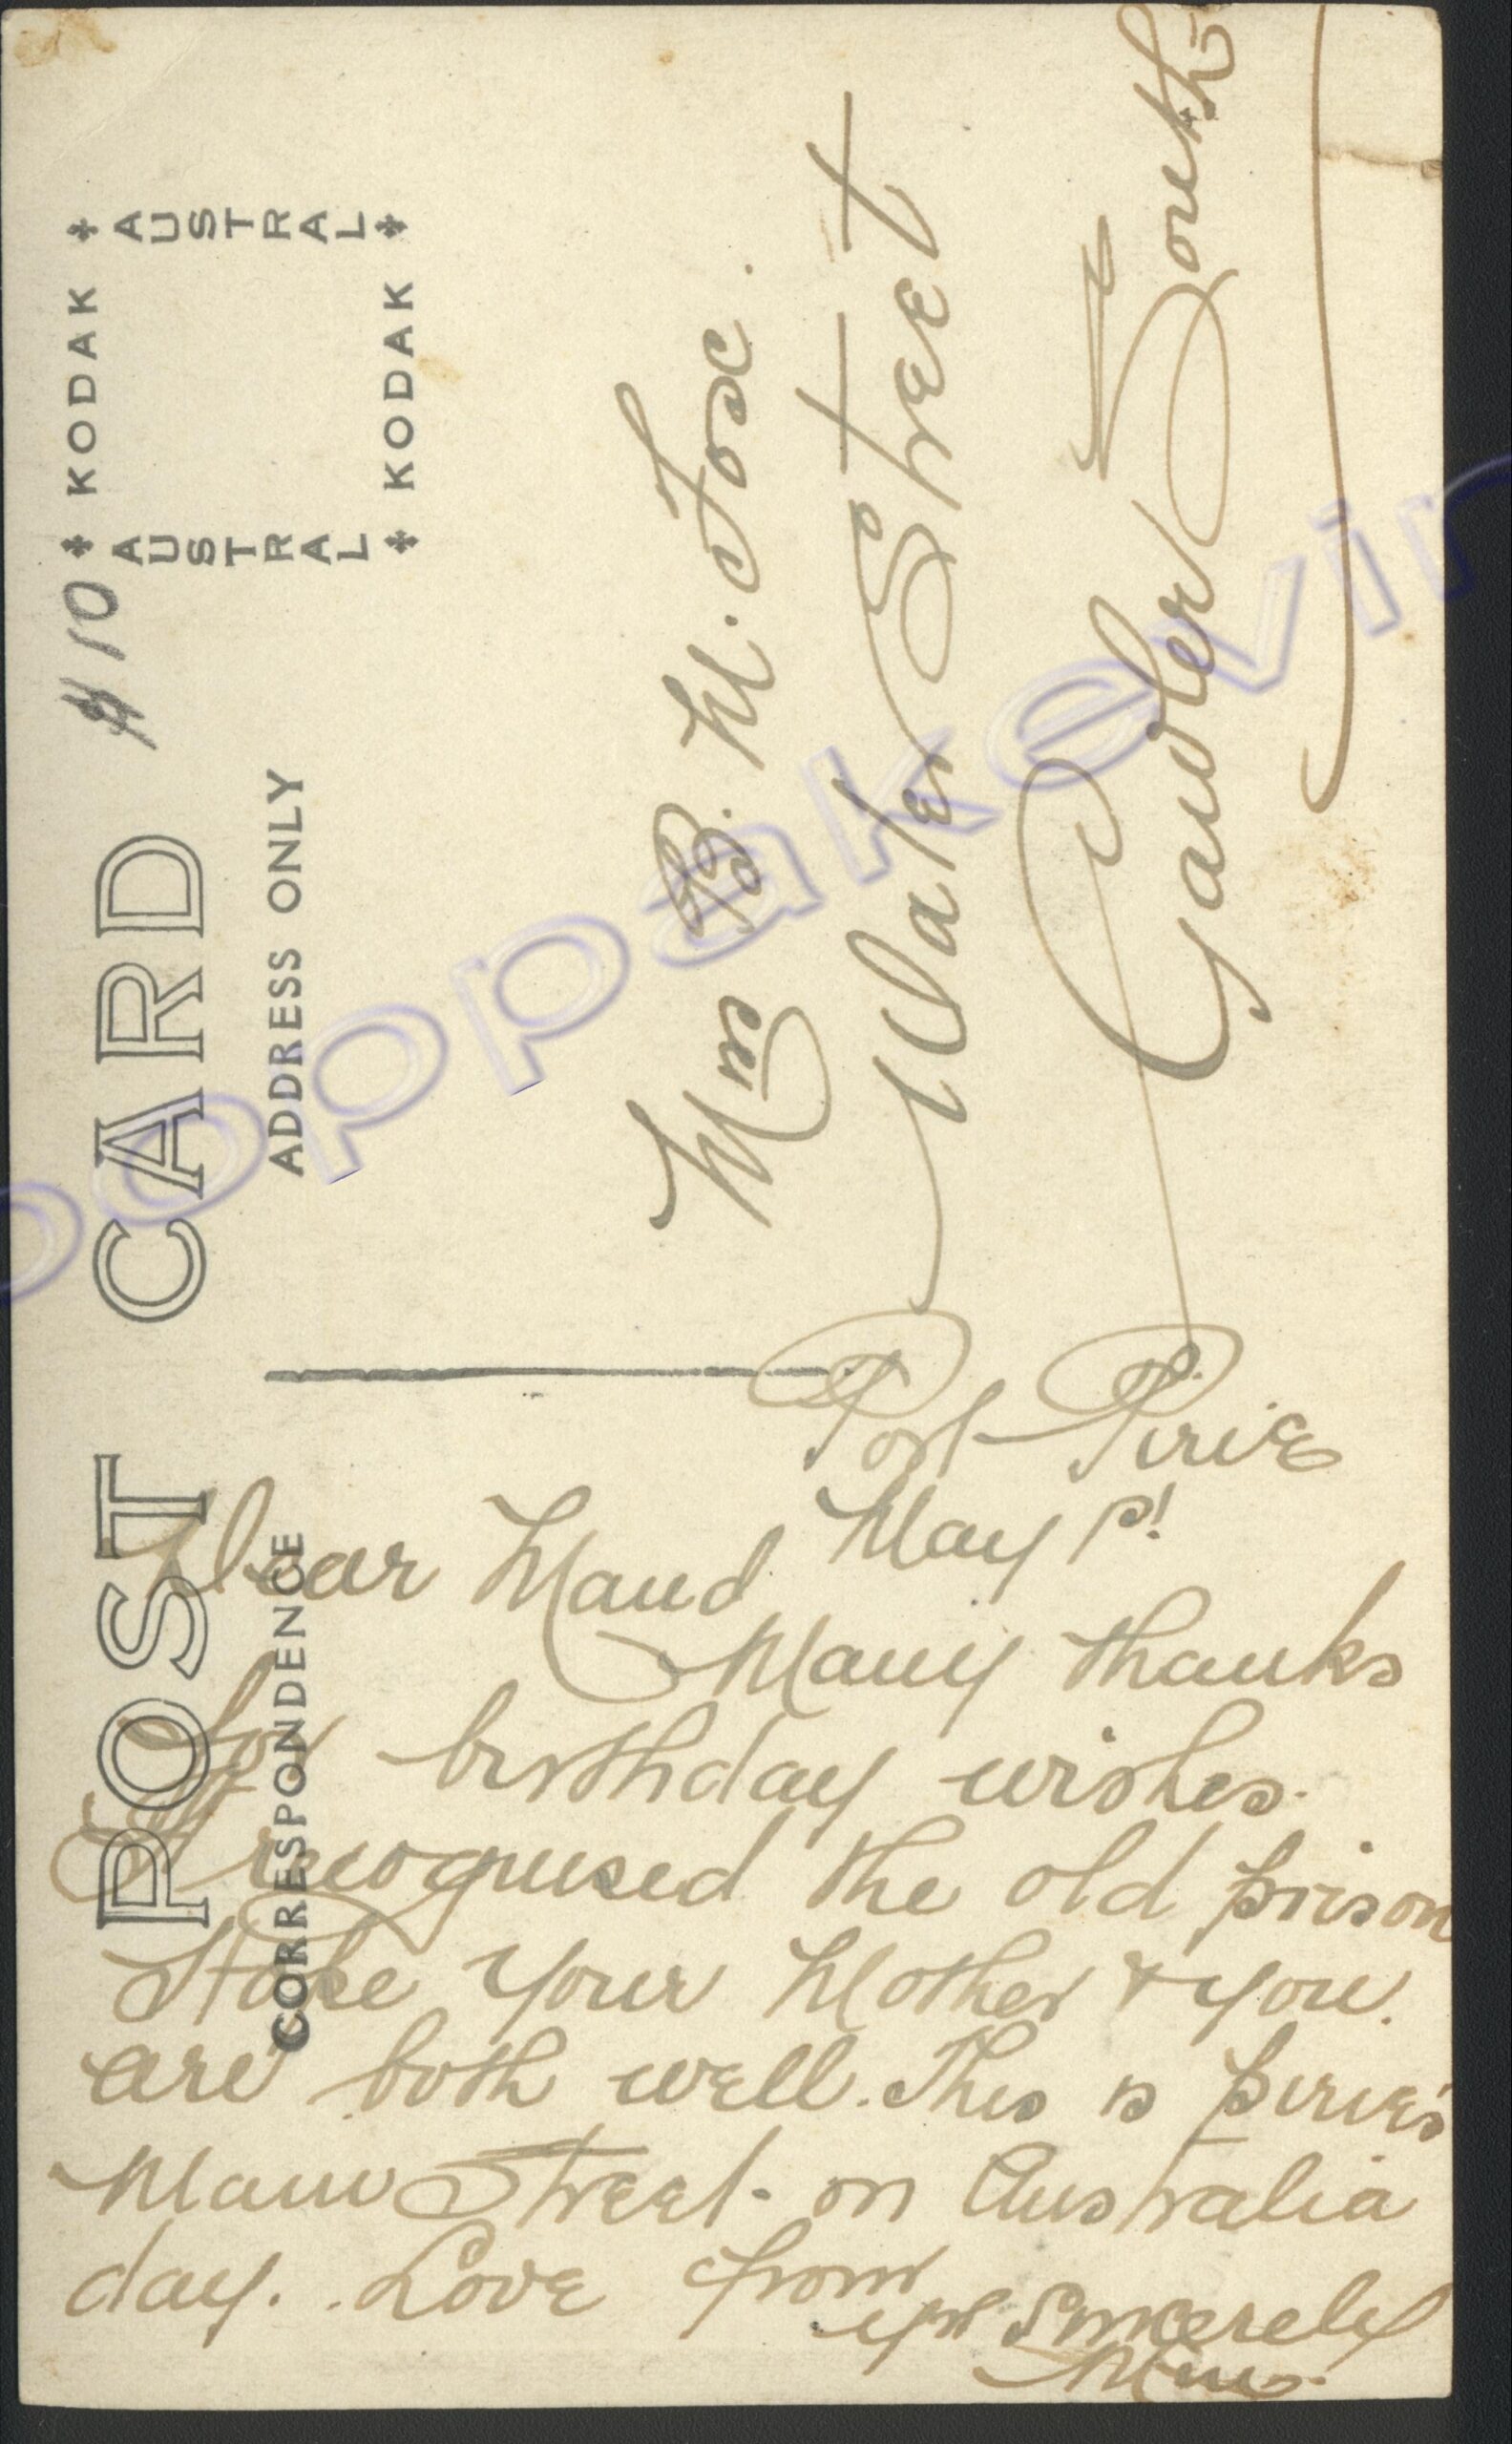 POST CARD
$10
KODAK
AUSTRAL
AUSTRAL
KODAK
CORRESPONDENCE
ADDRESS ONLY
Port Pirie
May 1st
Dear Maud
Many thanks
for birthday wishes.
I recognised the old prison
Hope your Mother & you
are both well. This is Pirie's
Main Street on Australia
day. Love from
yrs Sincerely
B. M. Fox.
Water Street
Gawler South